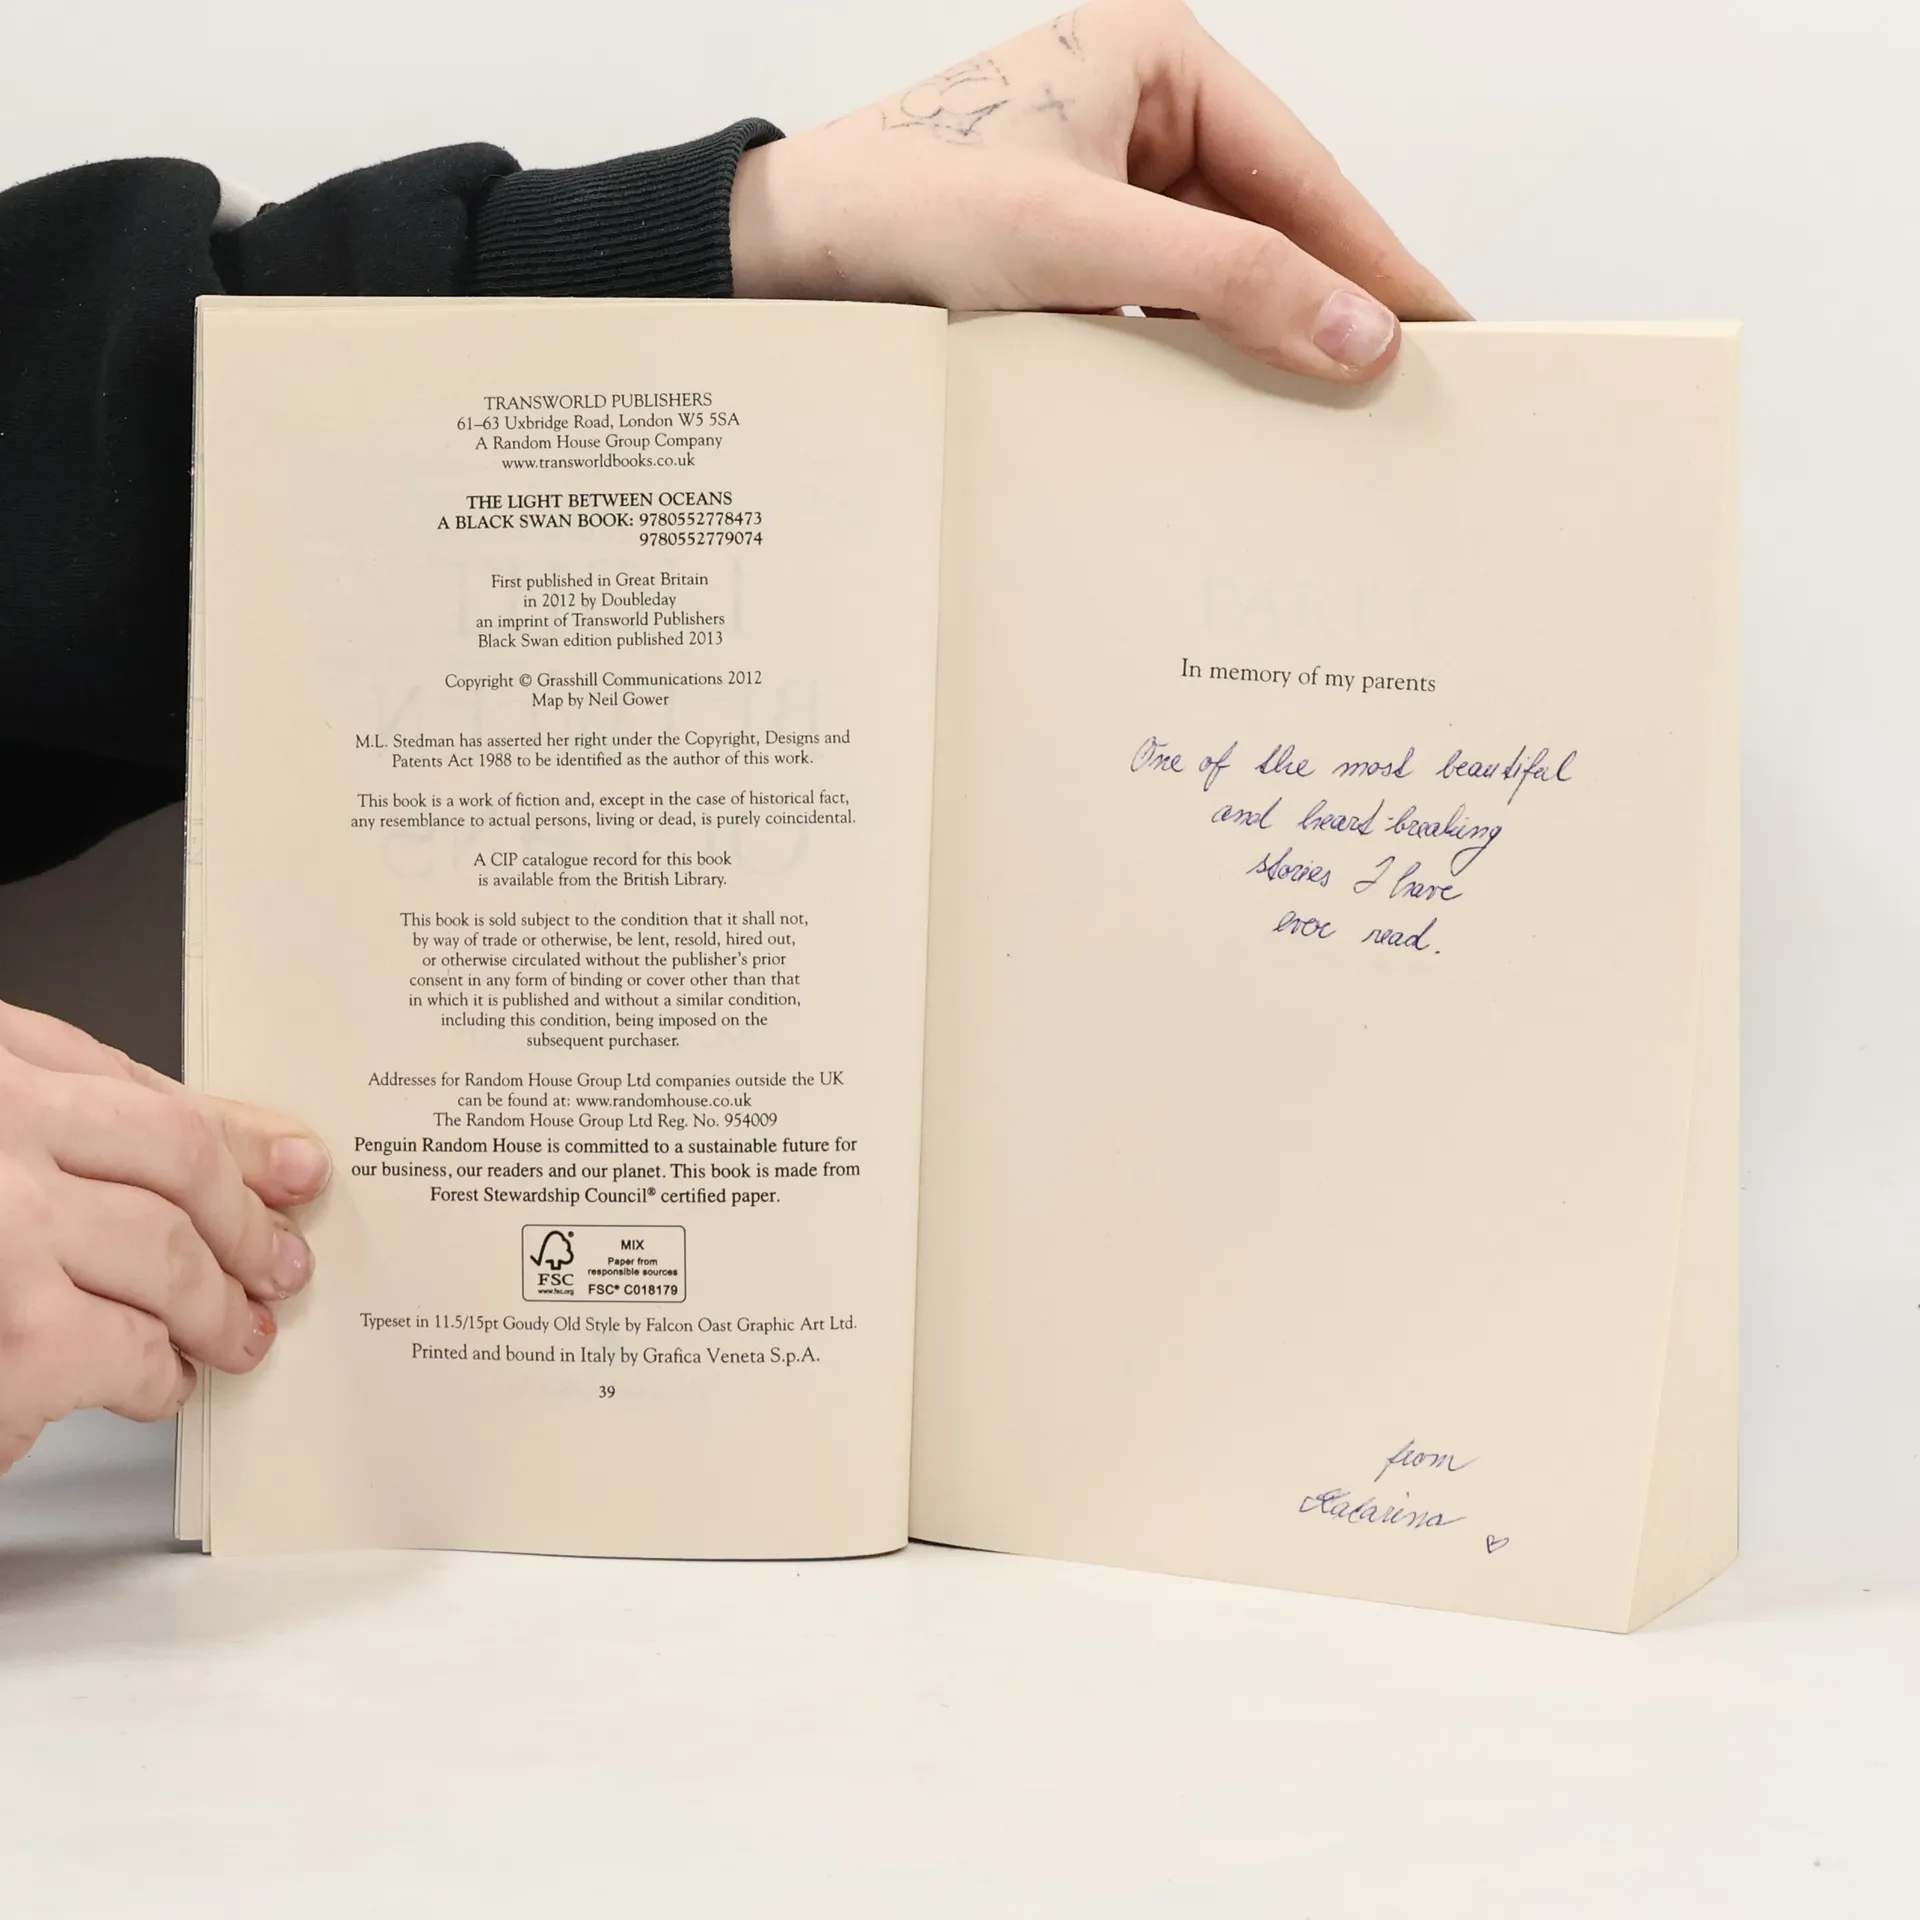 TRANSWORLD PUBLISHERS
61–63 Uxbridge Road, London W5 5SA
A Random House Group Company
www.transworldbooks.co.uk
THE LIGHT BETWEEN OCEANS
A BLACK SWAN BOOK: 9780552778473
9780552779074
First published in Great Britain
in 2012 by Doubleday
an imprint of Transworld Publishers
Black Swan edition published 2013
Copyright © Grasshill Communications 2012
Map by Neil Gower
M.L. Stedman has asserted her right under the Copyright, Designs and
Patents Act 1988 to be identified as the author of this work.
This book is a work of fiction and, except in the case of historical fact,
any resemblance to actual persons, living or dead, is purely coincidental.
A CIP catalogue record for this book
is available from the British Library.
This book is sold subject to the condition that it shall not,
by way of trade or otherwise, be lent, resold, hired out,
or otherwise circulated without the publisher's prior
consent in any form of binding or cover other than that
in which it is published and without a similar condition,
including this condition, being imposed on the
subsequent purchaser.
Addresses for Random House Group Ltd companies outside the UK
can be found at: www.randomhouse.co.uk
The Random House Group Ltd Reg. No. 954009
Penguin Random House is committed to a sustainable future for
our business, our readers and our planet. This book is made from
Forest Stewardship Council® certified paper.
MIX
Paper from
responsible sources
FSC® C018179
FSC
www.fsc.org
Typeset in 11.5/15pt Goudy Old Style by Falcon Oast Graphic Art Ltd.
Printed and bound in Italy by Grafica Veneta S.p.A.
39
In memory of my parents
One of the most beautiful
and heart-breaking
stories I have
ever read.
from
Katarina